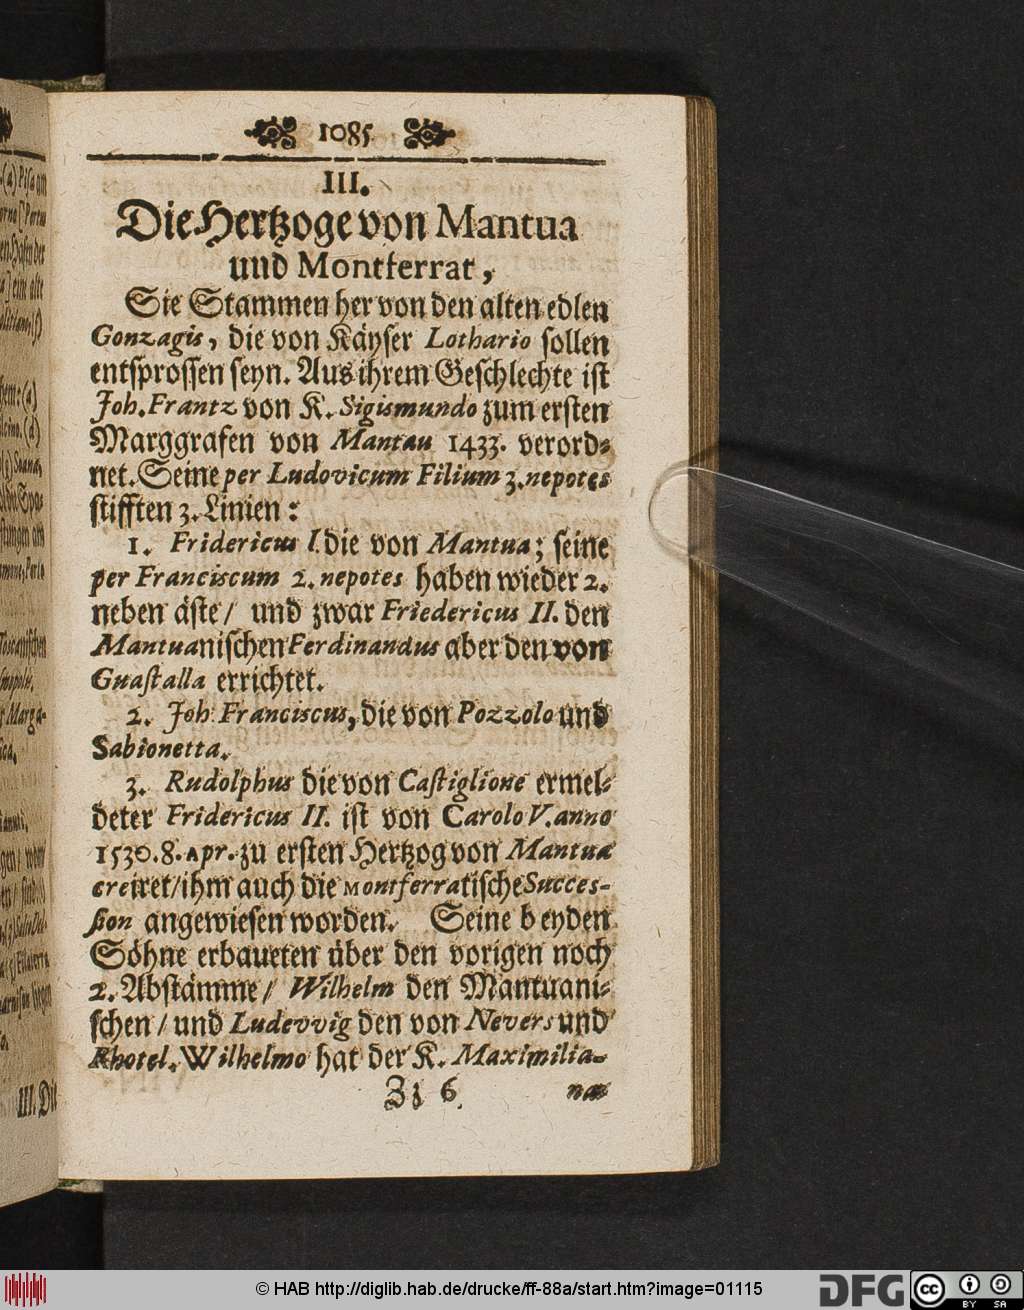 1085
III.
Die Hertzoge von Mantua
und Montferrat,
Sie Stammen her von den alten edlen
Gonzagis, die von Käyser Lothario sollen
entsprossen seyn. Aus ihrem Geschlechte ist
Joh. Frantz von K. Sigismundo zum ersten
Marggrafen von Mantau 1433. verord-
net. Seine per Ludovicum Filium 3. nepotes
stifften 3. Linien:
1. Fridericus I. die von Mantua; seine
per Franciscum 2. nepotes haben wieder 2.
neben äste / und zwar Friedericus II. den
Mantuanischen Ferdinandus aber den von
Guastalla errichtet.
2. Joh. Franciscus, die von Pozzolo und
Sabionetta.
3. Rudolphus die von Castiglione ermel-
deter Fridericus II. ist von Carolo V. anno
1530. 8. Apr. zu ersten Hertzog von Mantua
creiret / ihm auch die Montferratische Succes-
sion angewiesen worden. Seine beyden
Söhne erbaueten über den vorigen noch
2. Abstämme / Wilhelm den Mantuani-
schen / und Ludevvig den von Nevers und
Rhotel. Wilhelmo hat der K. Maximilia-
Zz 6
nus
III. Die
© HAB http://diglib.hab.de/drucke/ff-88a/start.htm?image=01115
DFG
cc
BY SA